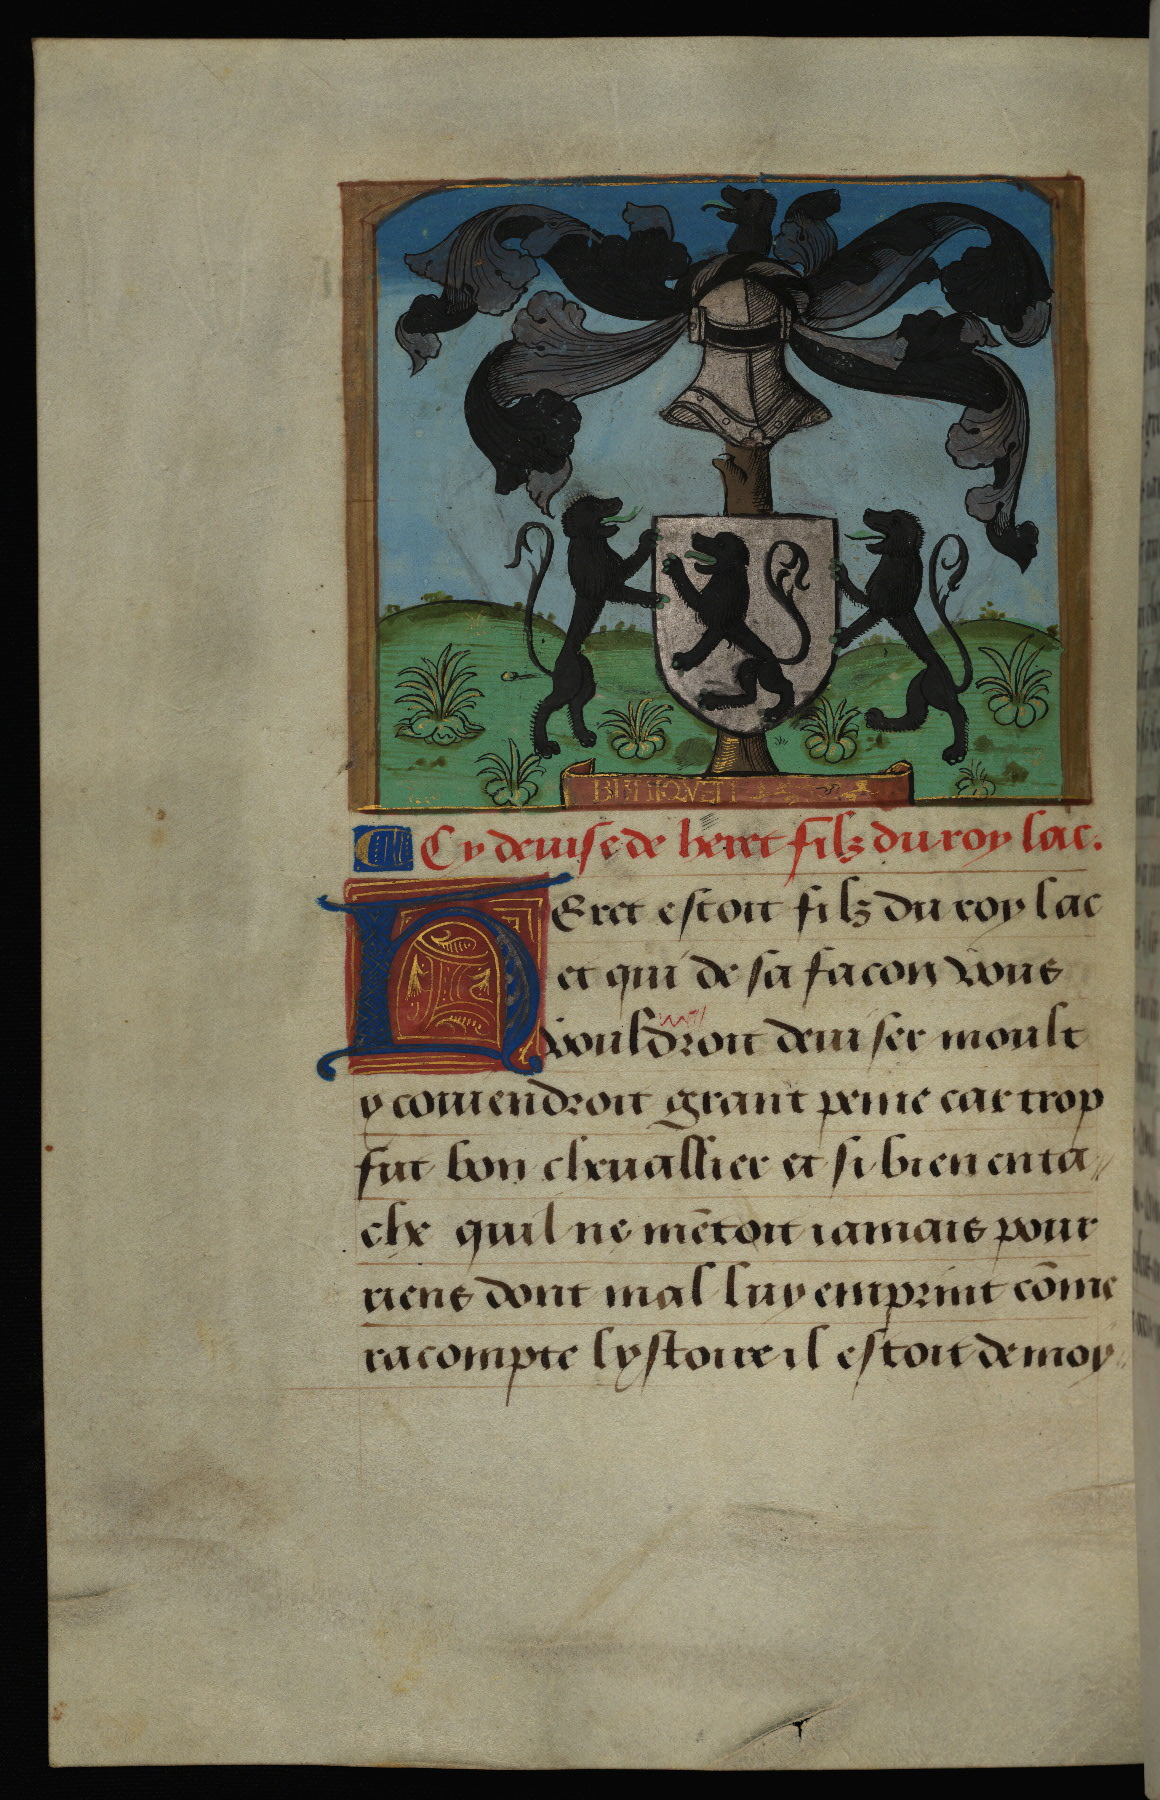 Cy deuise de heret filz du roy lac.
HEret estoit filz du roy lac
et qui de sa facon vous
vouldroit deuiser moult
y conuendroit grant peine car trop
fut bon cheuallier et si bien enta
che quil ne mētoit iamais pour
riens dont mal luy emprint cōme
racompte lystoire il estoit de moy